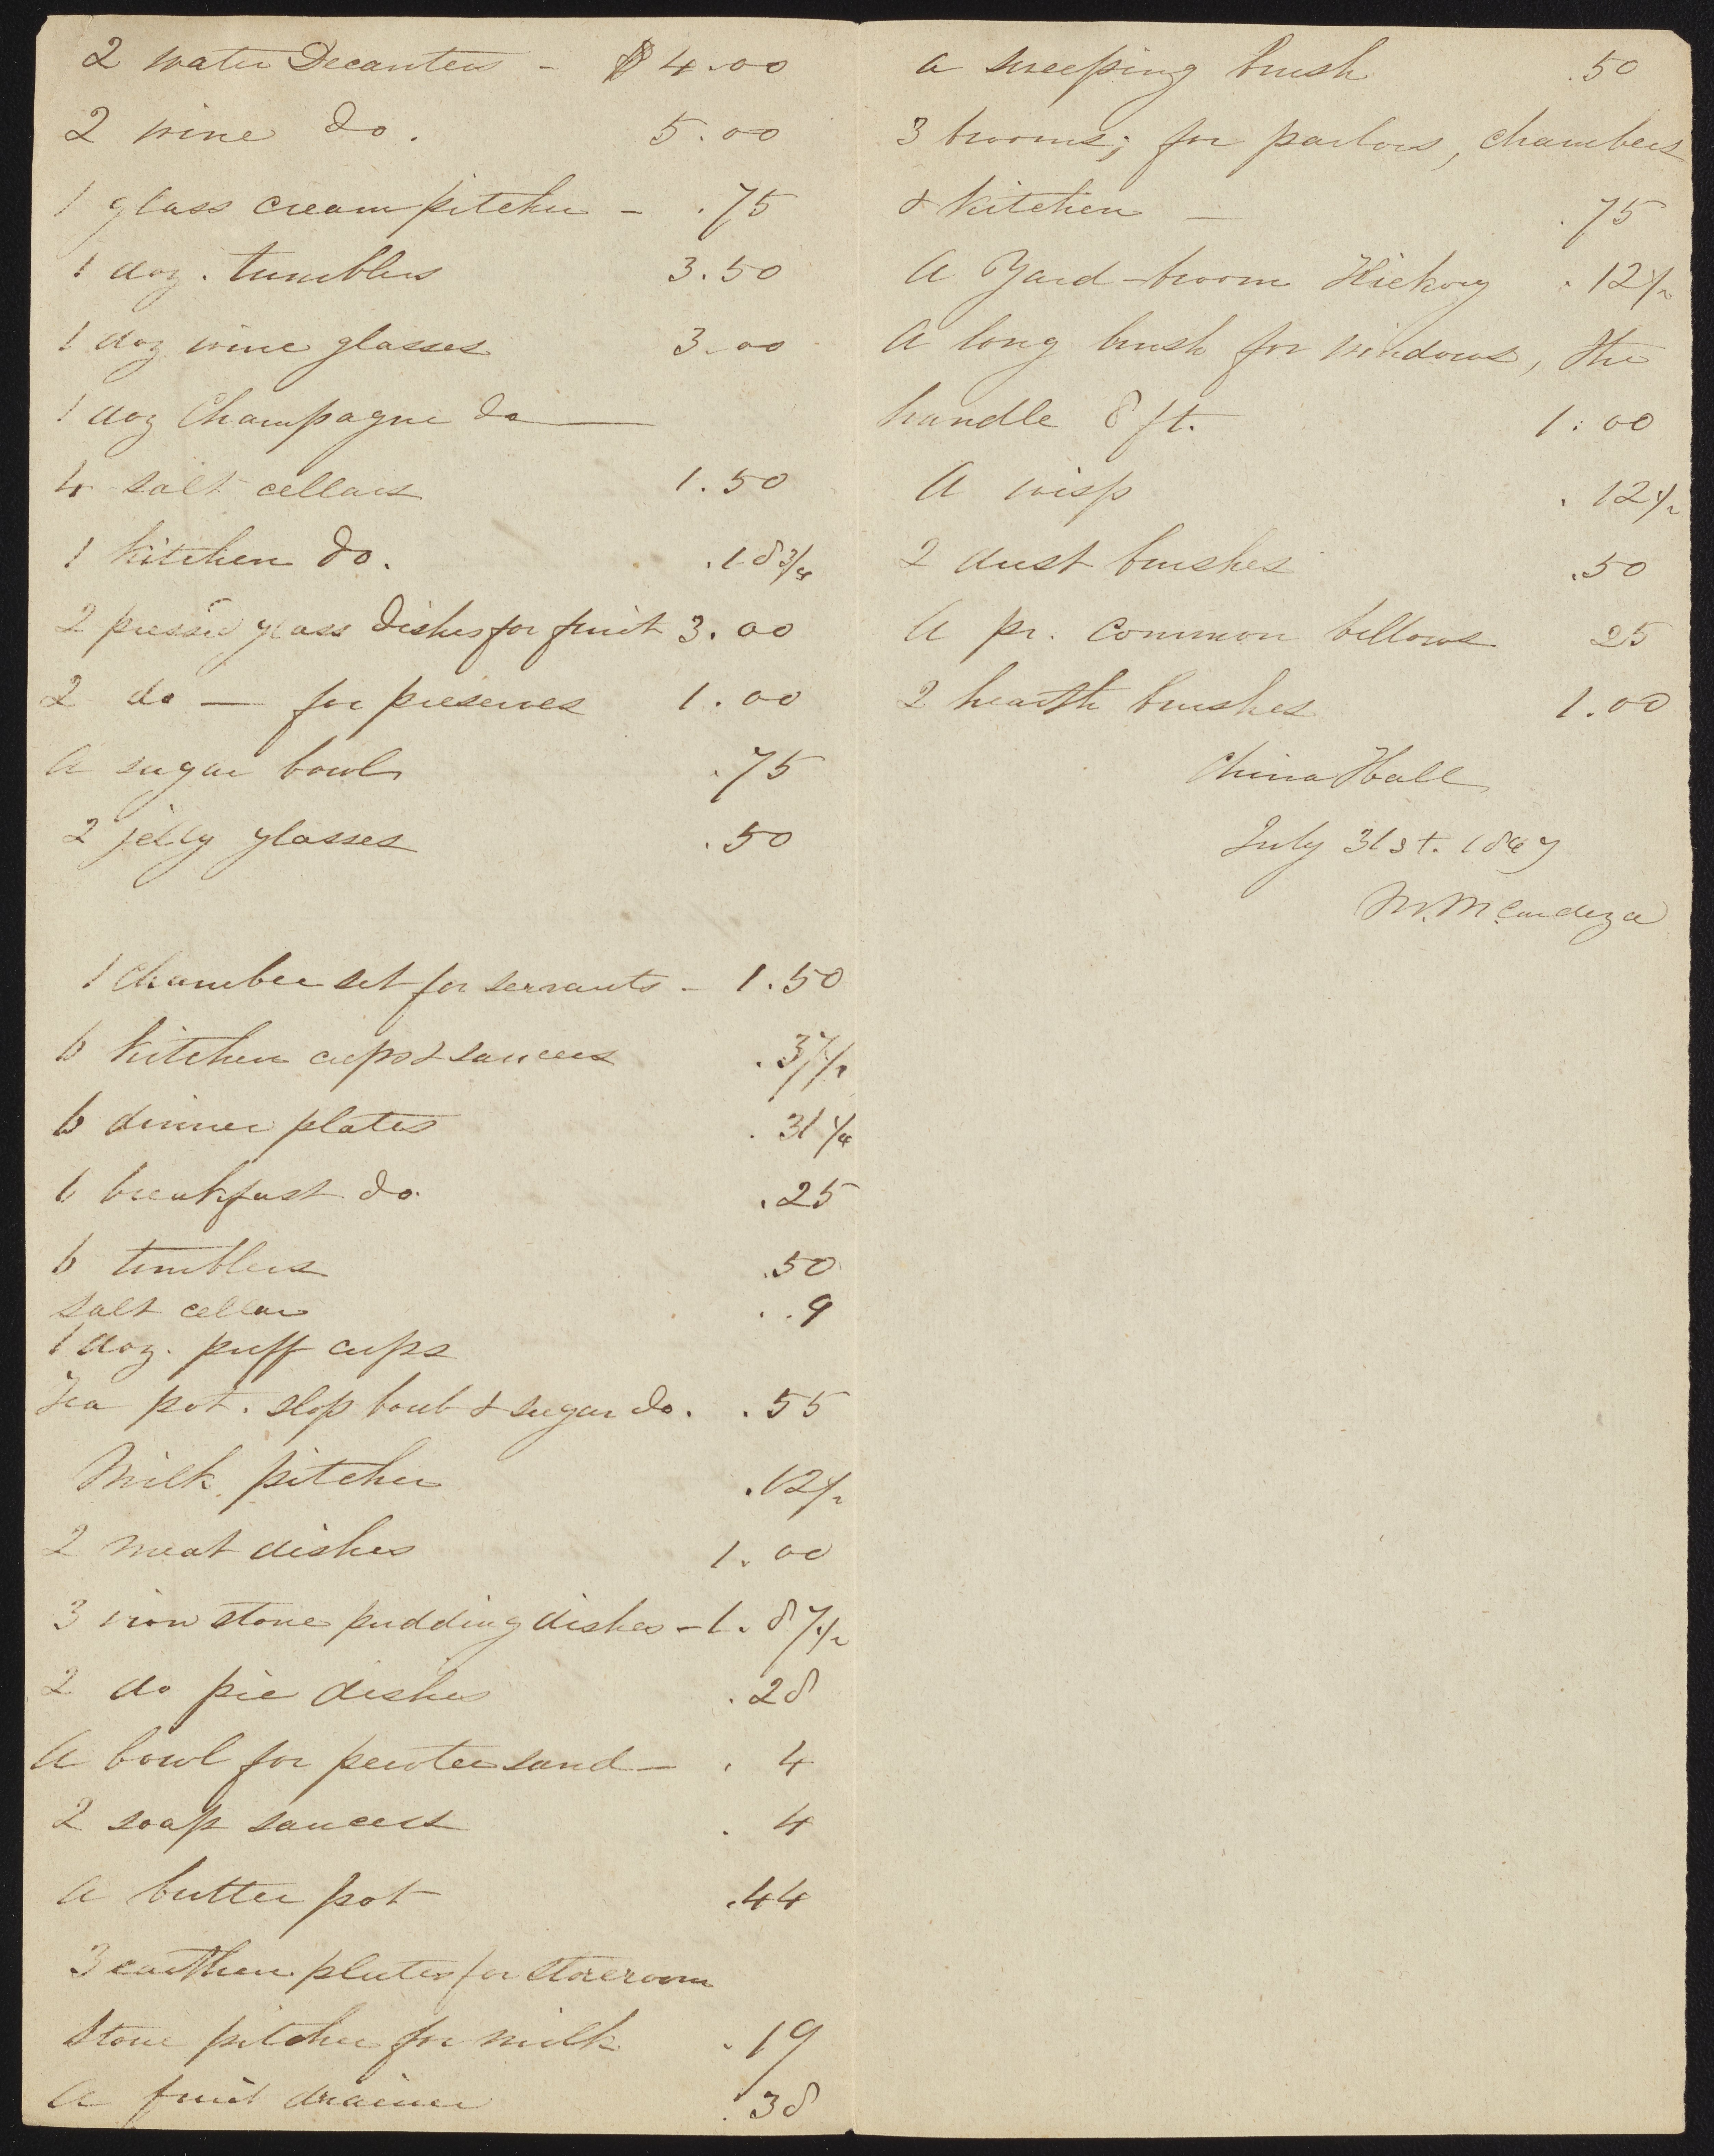 2 water Decanters - $4.00
2 wine do. 5.00
1 glass cream pitcher - .75
1 doz. tumblers 3.50
1 doz wine glasses 3.00
1 doz Champagne do —
4 salt cellars 1.50
1 kitchen do. .18 3/4
2 pressed glass dishes for fruit 3.00
2 do — for preserves 1.00
A sugar bowl .75
2 jelly glasses .50
1 chamber set for servants - 1.50
6 kitchen cups & saucers .37 1/2
6 dinner plates .31 1/4
6 breakfast do. .25
6 tumblers .50
Salt cellar . .9
1 doz. puff cups
Tea pot. slop bowl & sugar do. .55
Milk pitcher .12 1/2
2 meat dishes 1.00
3 iron stone pudding dishes - 1.87 1/2
2 do pie dishes .28
A bowl for pewter sand - . 4
2 soap saucers . 4
A butter pot .44
3 earthen plates for storeroom
Stone pitcher for milk .19
A fruit drainer .38
A sweeping brush .50
3 brooms; for parlors, chambers
& kitchen — .75
A Yard-broom Hickory .12 1/2
A long brush for windows, the
handle 8 ft. 1.00
A wisp .12 1/2
2 dust brushes .50
A pr. common bellows 25
2 hearth brushes 1.00
China Hall
July 31st. 1847